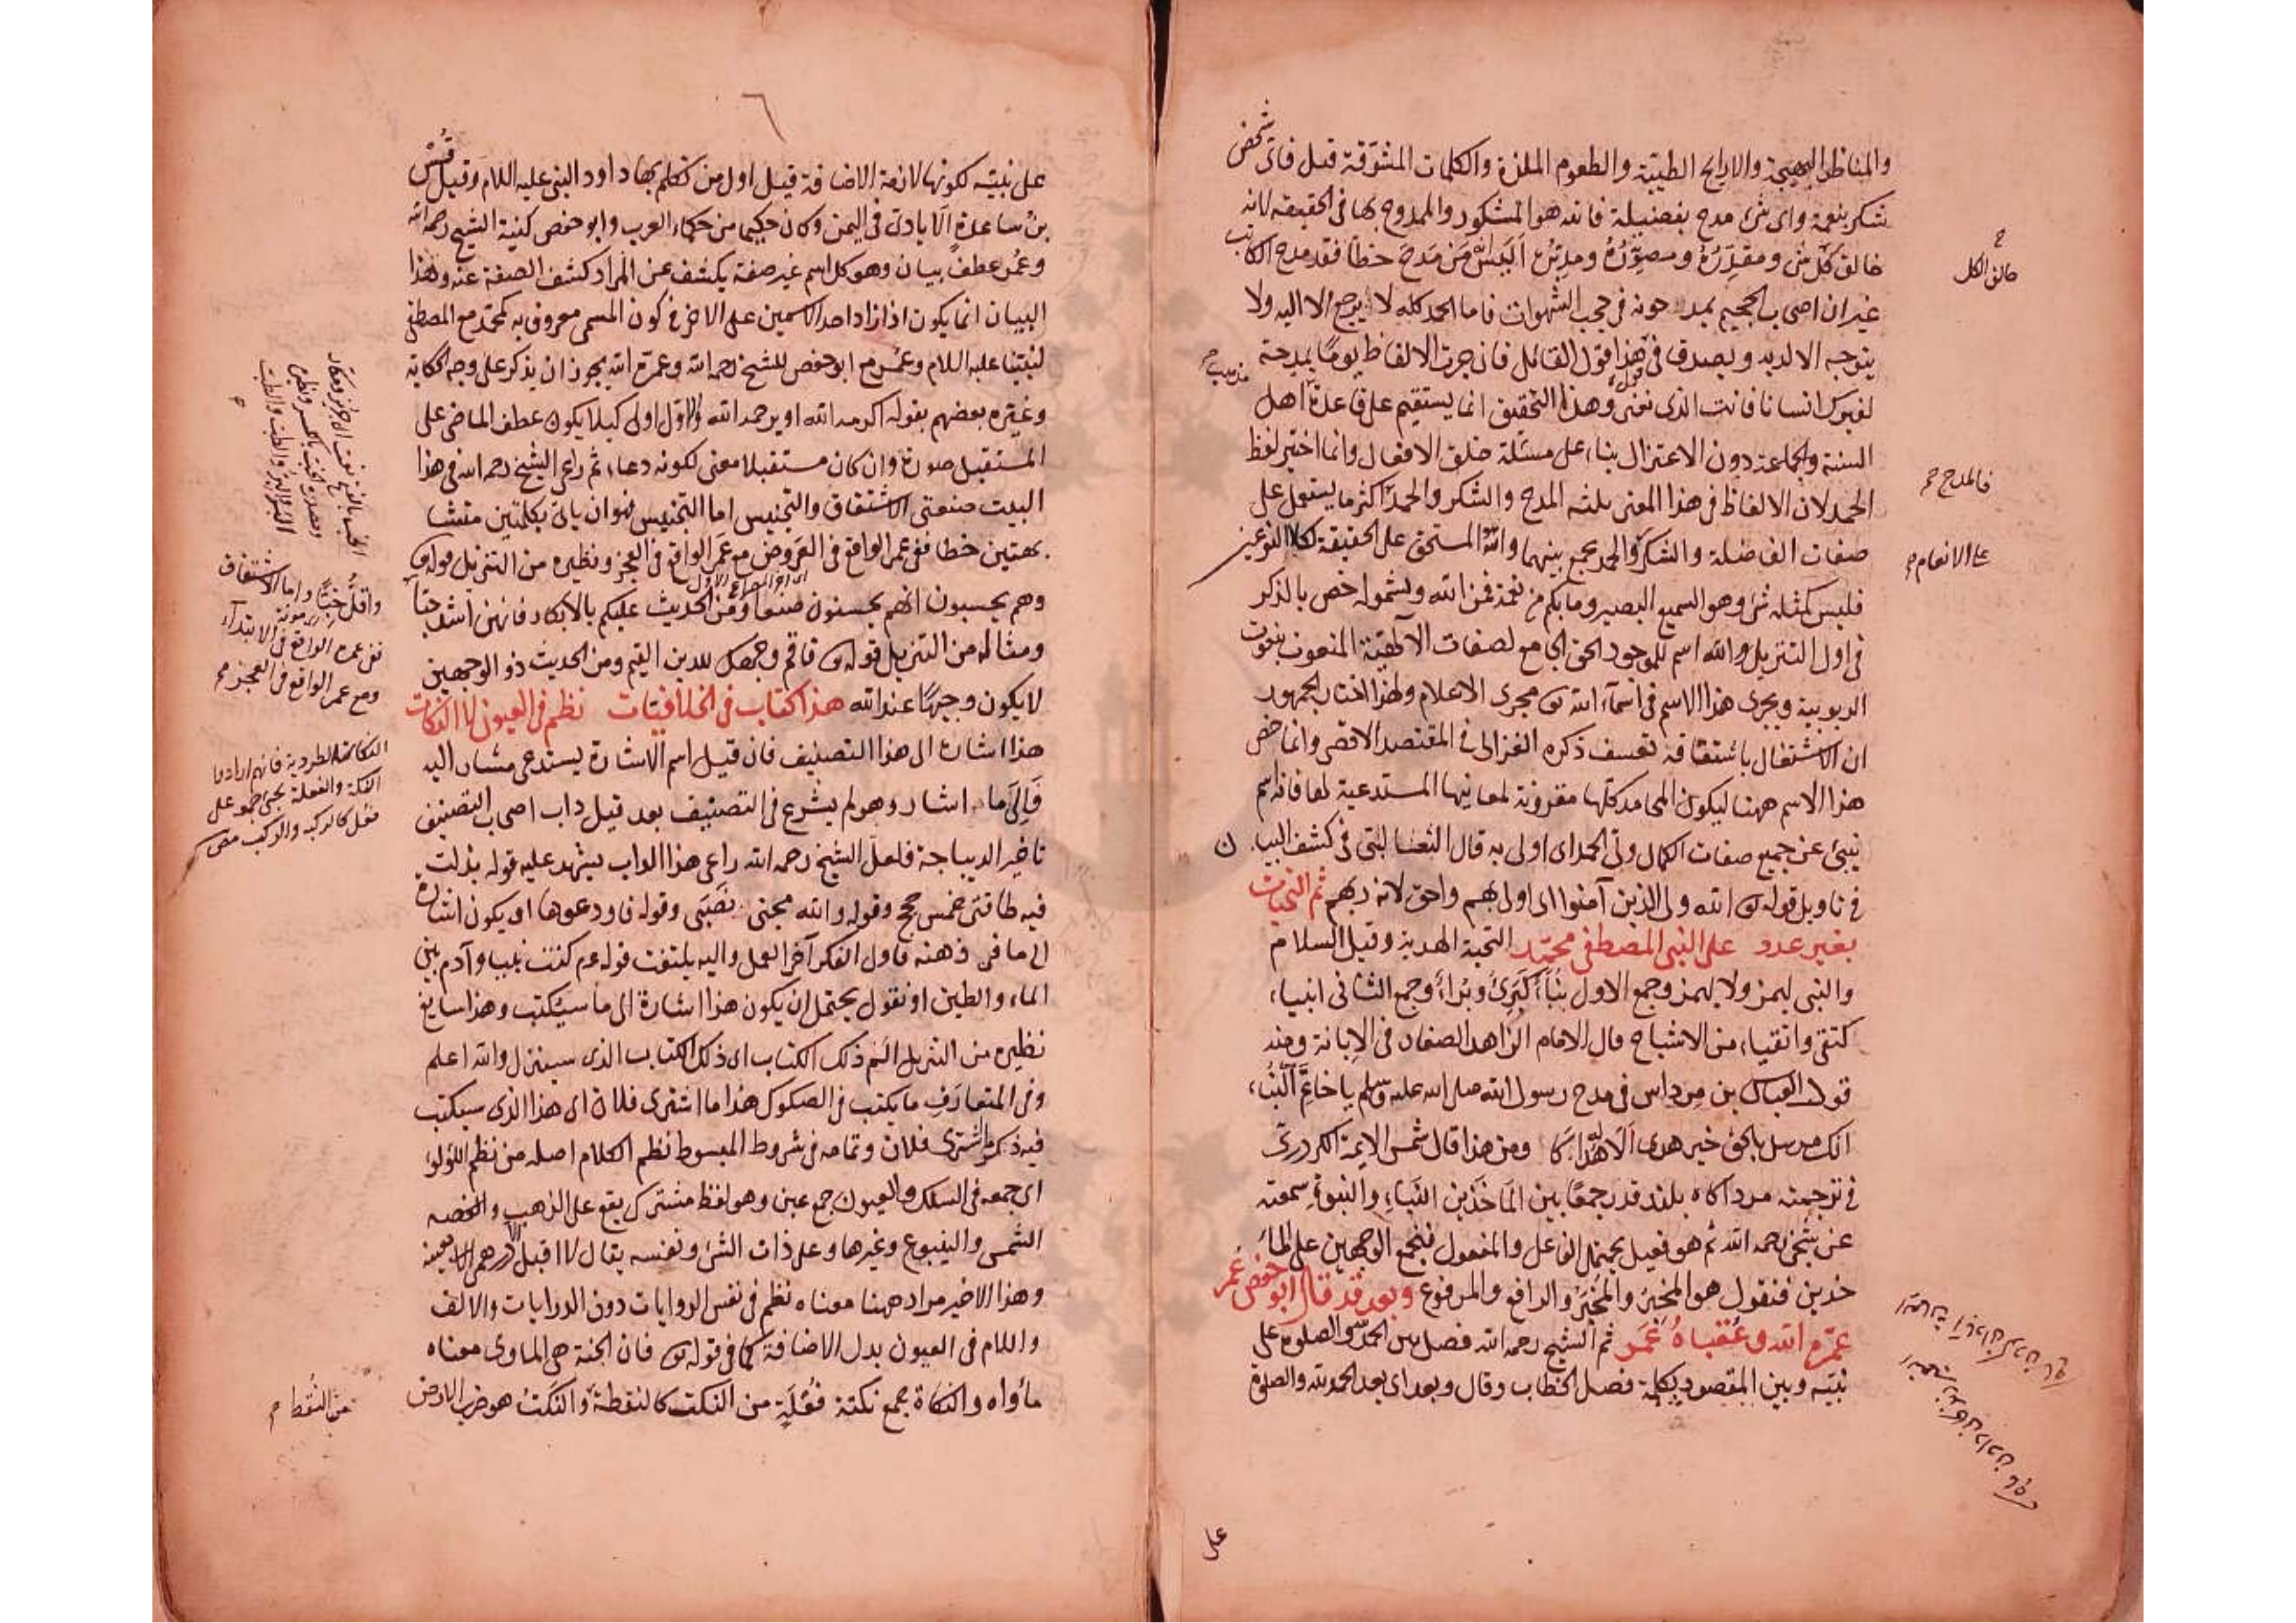 والمناظر البهيجة والاراييح الطيبة والطعوم الملذة والكلمات المشوقة قيل فاى شخص
شكر بنعمة واى شئ مدح بفضيلة فانه هو المشكور والممدوح بها فى الحقيقه لانه
خالق كل شئ ومقدره ومصوره ومدبره اليس من مدح خطا فقد مدح الكاتب
غير ان اصحاب الجحيم يمدحونه فى حجب الشهوات فاما الحمد كله لا يرجع الا اليه ولا
يتوجه الا لديه ويصدق فى هذا قول القائل فان جرت الالفاظ يوما بمدحة
لغيرك انسانا فانت الذى نعنى وهذا التحقيق انما يستقيم على قاعدة اهل
السنة والجماعة دون الاعتزال بناء على مسئلة خلق الافعال وانما اختير لفظ
الحمد لان الالفاظ فى هذا المعنى ثلثه المدح والشكر والحمد اكثر ما يستعمل على
صفات الفاضلة والشكر والحمد يجمع بينهما والله المستحق على الحقيقة لكلا النوعين
فليس كمثله شئ وهو السميع البصير وما بكم من نعمة فمن الله ولشموله خص بالذكر
فى اول التنزيل والله اسم للموجود الحق الجامع لصفات الالهية المنعوت بنعوت
الربوبية ويجرى هذا الاسم فى اسماء الله تع مجرى الاعلام ولهذا اختار الجمهور
ان الاشتغال باشتقاقه تعسف ذكره الغزالى فى المقتصد الاقصى وانما خص
هذا الاسم ههنا ليكون المحامد كلها مقرونة لمعانيها المستدعية لها فانه اسم
ينبئ عن جميع صفات الكمال ولى الحمد اى اولى به قال الثعالبى فى كشف البيان
فى تاويل قوله تع الله ولى الذين آمنوا اى اولى بهم واحق لانه ربهم ثم التحيات
بغير عدد على النبى المصطفى محمد التحية الهدية وقيل السلام
والنبى يهمز ولا يهمز وجمع الاول نبأ كبرئ وبرأ وجمع الثانى انبياء
كتقى واتقياء من الاشباح قال الامام الزاهد الصفار فى الابانة ومنه
قول العباس بن مرداس فى مدح رسول الله صلى الله عليه وسلم يا خاتم النبأ
انك مرسل بالحق خير هدى الاله هداكا ومن هذا قال شمس الايمة الكردرى
فى ترجمته مرد اكاه بلند قدر جمعا بين الماخذين النباء والنبوة سمعته
عن شيخى رحمه الله ثم هو فعيل يحتمل الفاعل والمفعول فنجمع الوجهين على الما
خذين فنقول هو المخبر والمخبر والرافع والمرفوع وبعد قد قال ابو حفص عمر
عمره الله وعقباه عمر ثم الشيخ رحمه الله فصل بين الحمد لله والصلوة على
نبيه وبين المقصود بكلمة فصل الخطاب وقال وبعد اى بعد الحمد لله والصلوة
خالق الكل
فالمدح
على الانعام
على
٦
على نبيه لكونها لازمة الاضافة قيل اول من تكلم بها داود النبى عليه السلام وقيل قس
بن ساعدة الايادى فى اليمن وكان حكيما من حكماء العرب وابو حفص كنية الشيخ رحمه الله
وعمر عطف بيان وهو كل اسم غير صفة يكشف عن المراد كشف الصفة عنه وهذا
البيان انما يكون اذا زاد احد الاسمين على الاخر فى كون المسمى معروفا به كمحمد مع المصطفى
لنبينا عليه السلام وعمر مع ابو حفص للشيخ رحمه الله وعمره الله يجوز ان يذكر على وجه الحكاية
وغيره بعضهم بقوله اكرمه الله او يرحمه الله والاول اولى كيلا يكون عطف الماضى على
المستقبل صورة وان كان مستقبلا معنى لكونه دعاء ثم راعى الشيخ رحمه الله فى هذا
البيت صنعتى الاشتقاق والتجنيس اما التجنيس فهو ان ياتى بكلمتين متشا
بهتين خطا ففى عمر الواقع فى العروض مع غمر الواقع فى العجز ونظيره من التنزيل قوله تع
وهم يحسبون انهم يحسنون صنعا ومن الحديث عليكم بالابكار فانهن اشد حبا
ومثاله من التنزيل قوله تع فاقم وجهك للدين القيم ومن الحديث ذو الوجهين
لا يكون وجيها عند الله هذا كتاب فى الخلافيات نظم فى العيون لا النكات
هذا اشارة الى هذا التصنيف فان قيل اسم الاشارة يستدعى مشارا اليه
فالى ماذا اشار وهو لم يشرع فى التصنيف بعد قيل داب اصحاب التصنيف
تاخير الديباجة فلعل الشيخ رحمه الله راعى هذا الداب يشهد عليه قوله بذلت
فيه طاقتى خمس حجج وقوله والله مجنى نصبى وقوله فاودعوها او يكون اشارة
الى ما فى ذهنه فاول الفكر آخر العمل واليه يلتفت قوله عم كنت نبيا وآدم بين
الماء والطين او نقول يحتمل ان يكون هذا اشارة الى ما سيكتب وهذا سايغ
نظيره من التنزيل الم ذلك الكتاب اى ذلك الكتاب الذى سينزل والله اعلم
وفى المتعارف ما يكتب فى الصكوك هذا ما اشترى فلان اى هذا الذى سيكتب
فيه ذكر ما اشترى فلان وتمامه فى شروط المبسوط نظم الكلام اصله من نظم اللؤلؤ
اى جمعه فى السلك والعيون جمع عين وهو لفظ مشترك يقع على الذهب والفضه
الشمس والينبوع وغيرها وعلى ذات الشئ ونفسه يقال لا اقبل الا درهمى بعينه
وهذا الاخير مراد ههنا معناه نظم فى نفس الروايات دون الدرايات والالف
واللام فى العيون بدل الاضافة كما فى قوله تع فان الجنة هى الماوى معناه
مأواه والنكاة جمع نكتة فعلة من النكت كالنقطة والنكت هو ضرب الارض
واقل خبا واما الاشتقاق
ففى عمره الواقع فى الابتداء
ومع عمر الواقع فى العجز
من النقط